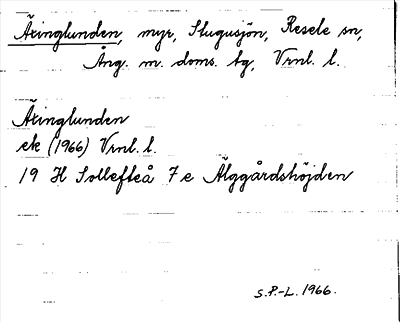 Äxinglunden, myr, Stugusjön, Resele sn,
Ång. m. doms. tg, Vrnl. l.
Äxinglunden
ek (1966) Vrnl. l.
19 H Sollefteå 7 e Älggårdshöjden
S.P.-L. 1966.